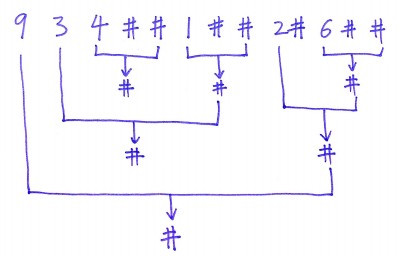 9 3 4 # # 1 # # 2 # 6 # #
# # #
# #
#